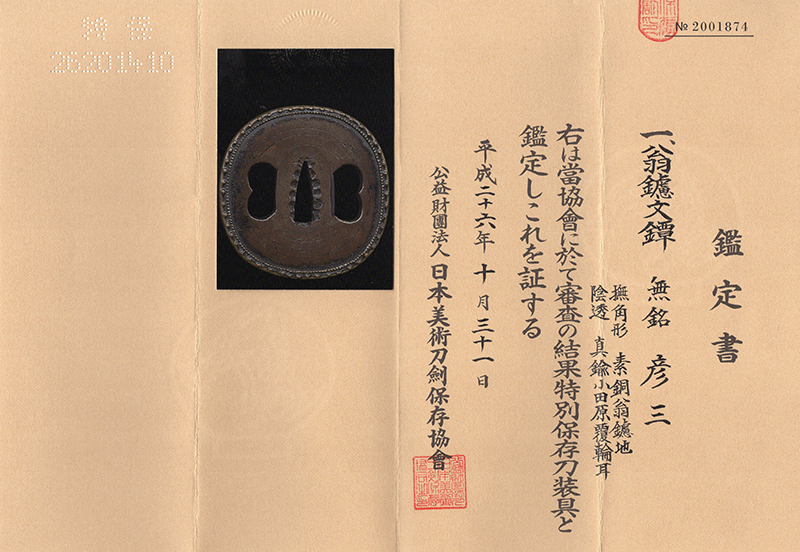 № 2001874
鑑定書
一、翁鑢文鐔 無銘 彦三
撫角形 素銅翁鑢地
陰透 真鍮小田原覆輪耳
右は當協會に於て審査の結果特別保存刀装具と
鑑定しこれを証する
平成二十六年十月三十一日
公益財團法人 日本美術刀劍保存協會
26201410